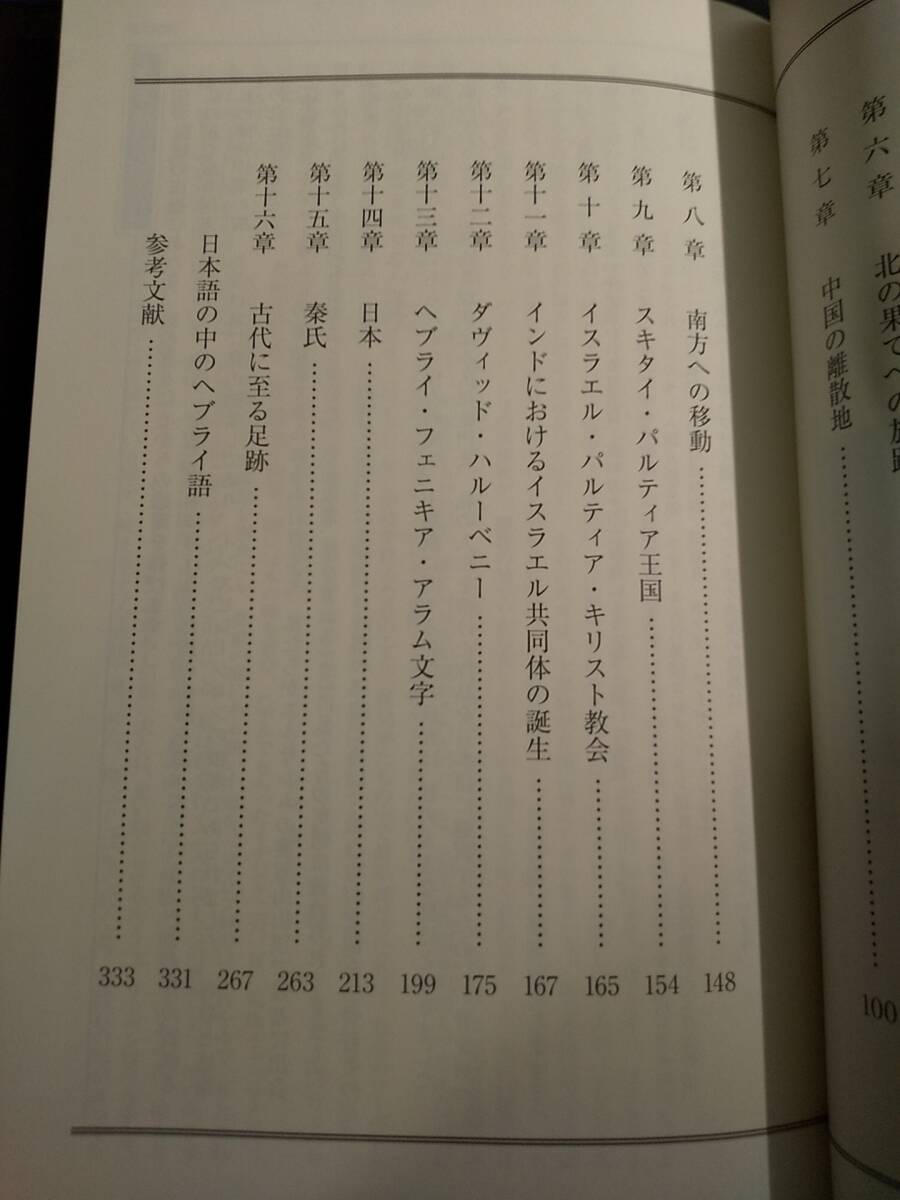 第六章 北の果てへの旅路
第七章 中国の離散地 100
第八章 南方への移動 148
第九章 スキタイ・パルティア王国 154
第十章 イスラエル・パルティア・キリスト教会 165
第十一章 インドにおけるイスラエル共同体の誕生 167
第十二章 ダヴィッド・ハルーベニー 175
第十三章 ヘブライ・フェニキア・アラム文字 199
第十四章 日本 213
第十五章 秦氏 263
第十六章 古代に至る足跡 267
日本語の中のヘブライ語 331
参考文献 333